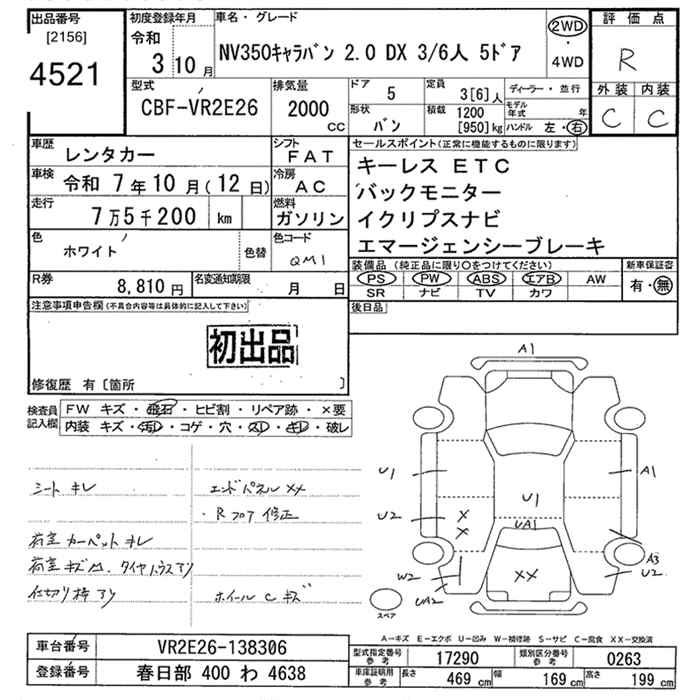 出品番号
[2156]
4521
初度登録年月
令和
3 10 月
車名・グレード
NV350キャラバン 2.0 DX 3/6人 5ドア
2WD
・
4WD
評価点
R
外装 内装
C C
型式
CBF-VR2E26
排気量
2000
CC
ドア
5
定員
3[6]人
ディーラー・並行
形状
バン
積載
1200
[950]kg
モデル年式 年
ハンドル 左・右
車歴
レンタカー
シフト
FAT
セールスポイント(正常に機能するものに限ります)
キーレス ETC
バックモニター
イクリプスナビ
エマージェンシーブレーキ
車検
令和 7年10月(12日)
冷房
AC
走行
7万5千200 km
燃料
ガソリン
色
ホワイト
色替
色コード
QM1
装備品 (純正品に限り○をつけてください)
PS PW ABS エアB AW
SR ナビ TV カワ
新車保証書
有・無
R券
8,810円
名変通知期限
月 日
後日品
注意事項申告欄(不具合内容等は具体的に記入して下さい)
初出品
修復歴 有〔箇所 〕
検査員
記入欄
FW キズ・飛石・ヒビ割・リペア跡・×要
内装 キズ・汚レ・コゲ・穴・スレ・キレ・破レ
シート キレ
エンドパネル XX
・Rフロア 修正
荷室 カーペット キレ
荷室 キズ凹. タイヤハウスアリ
仕切り棒 アリ
ホイールCキズ
A1
U1
A1
U1
U2
X
X
UA1
A3
U2
W2
UA2
XX
スペア
A-キズ E-エクボ U-凹み W-補修跡 S-サビ C-腐食 XX-交換済
車台番号
VR2E26-138306
登録番号
春日部 400 わ 4638
型式指定番号
参考
17290
類別区分番号
参考
0263
車庫証明用
参考
長さ
469 cm
幅
169 cm
高さ
199 cm